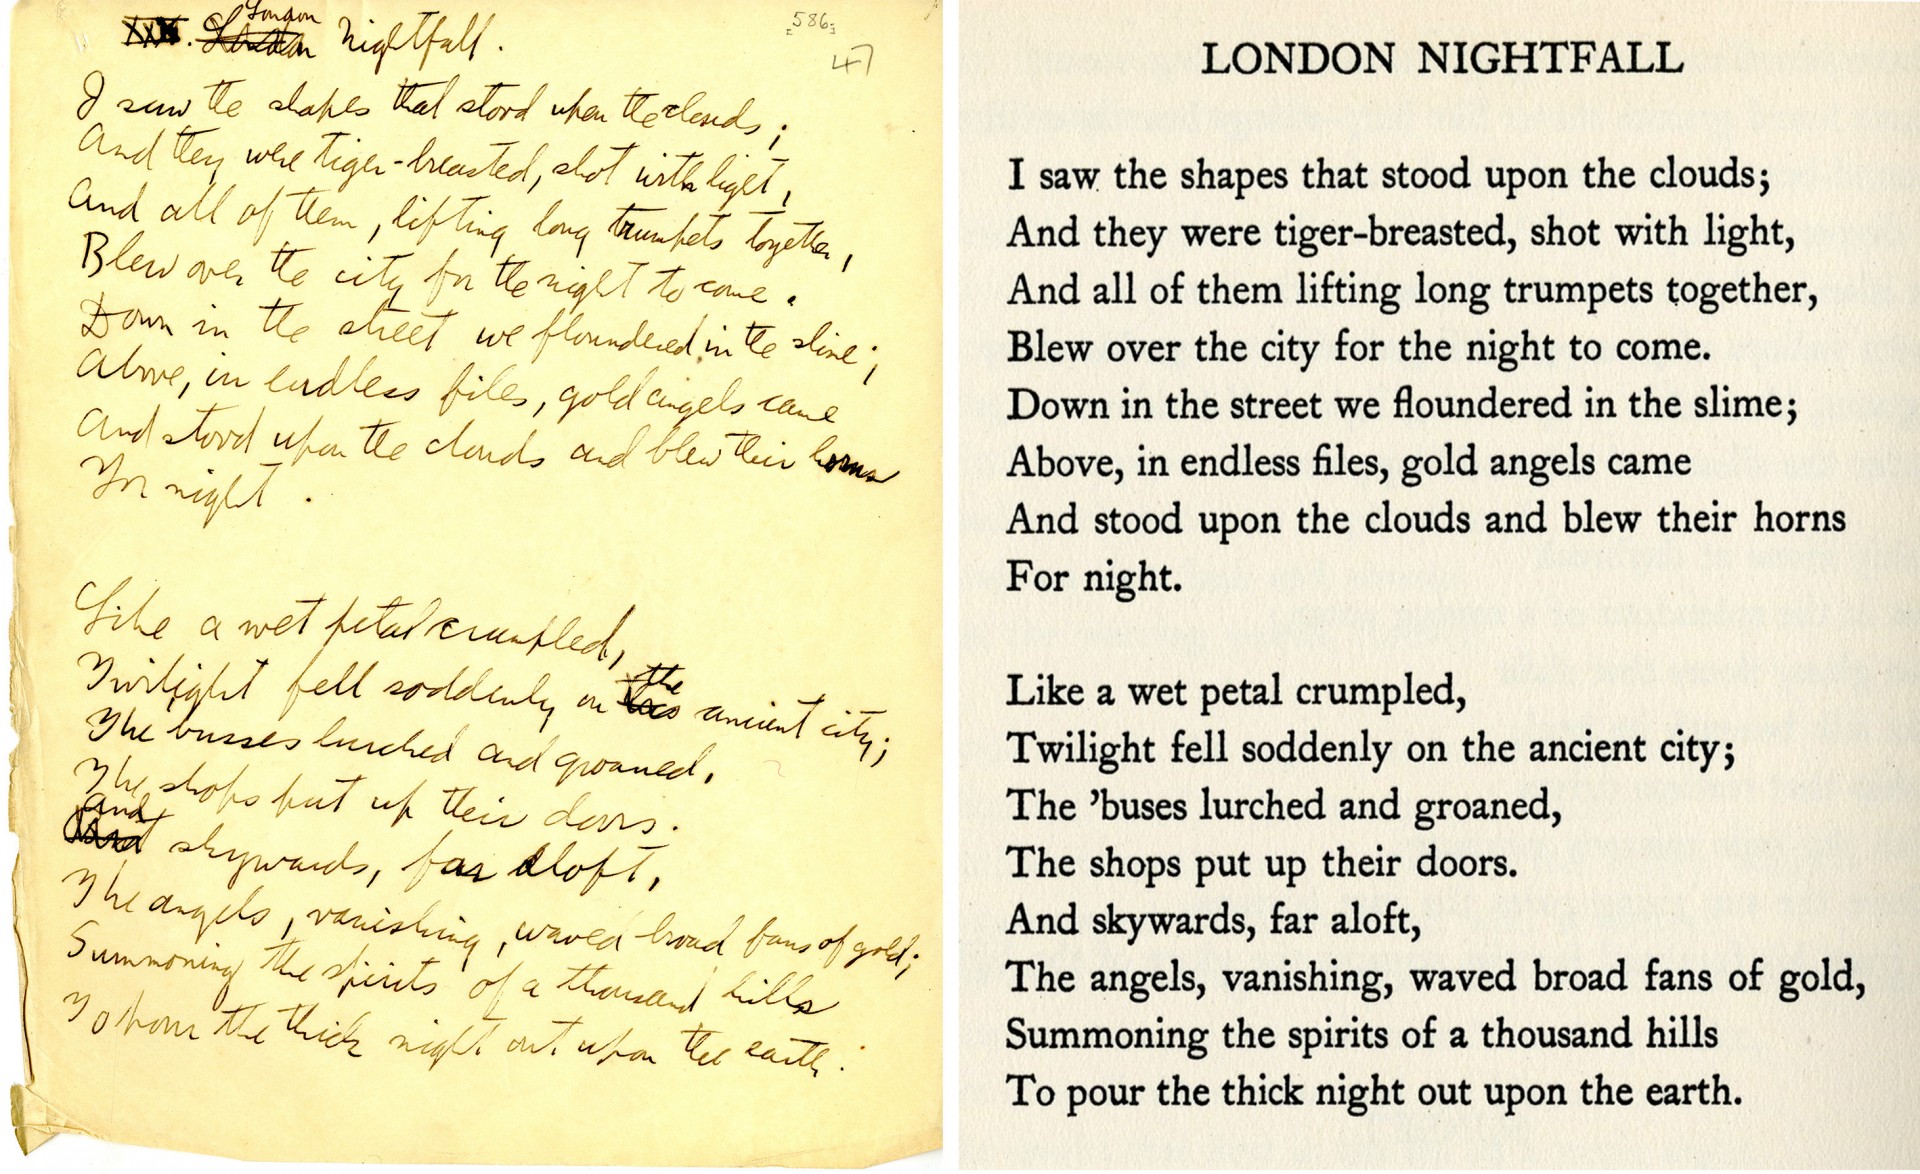 XXX. London London Nightfall.
586
47
I saw the shapes that stood upon the clouds;
And they were tiger-breasted, shot with light,
And all of them, lifting long trumpets together,
Blew over the city for the night to come.
Down in the street we floundered in the slime;
Above, in endless files, gold angels came
And stood upon the clouds and blew their horns
For night.
Like a wet petal crumpled,
Twilight fell soddenly on the ancient city;
The busses lurched and groaned,
The shops put up their doors.
And
skywards, far aloft,
The angels, vanishing, waved broad fans of gold;
Summoning the spirits of a thousand hills
To pour the thick night out upon the earth.
LONDON NIGHTFALL
I saw the shapes that stood upon the clouds;
And they were tiger-breasted, shot with light,
And all of them lifting long trumpets together,
Blew over the city for the night to come.
Down in the street we floundered in the slime;
Above, in endless files, gold angels came
And stood upon the clouds and blew their horns
For night.
Like a wet petal crumpled,
Twilight fell soddenly on the ancient city;
The ’buses lurched and groaned,
The shops put up their doors.
And skywards, far aloft,
The angels, vanishing, waved broad fans of gold,
Summoning the spirits of a thousand hills
To pour the thick night out upon the earth.